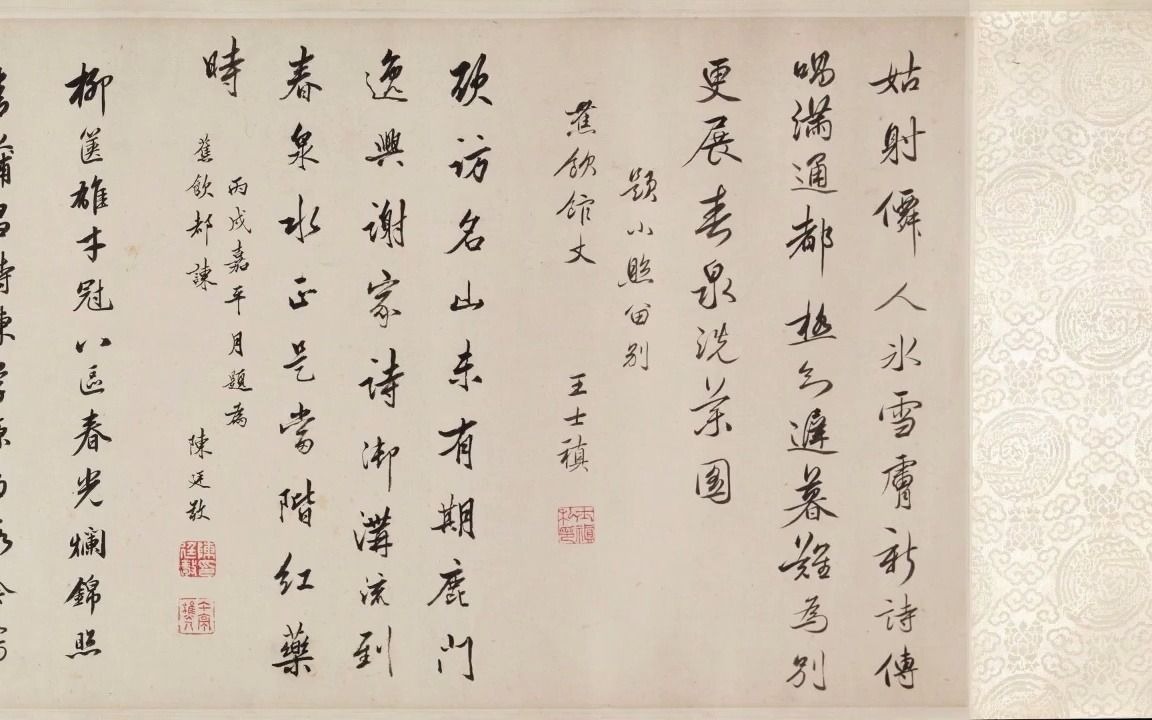 姑射僊人氷雪膚新詩傳
唱滿通都極知遲暮難為別
更展春泉洗藥圖
題小照留別
蕉飲館丈
王士禛
欲訪名山未有期鹿門
逸興謝家詩御溝流到
春泉水正是當階紅藥
時
丙戌嘉平月題為
蕉飲都諫
陳廷敬
柳篋雄才冠八區春光爛錦照